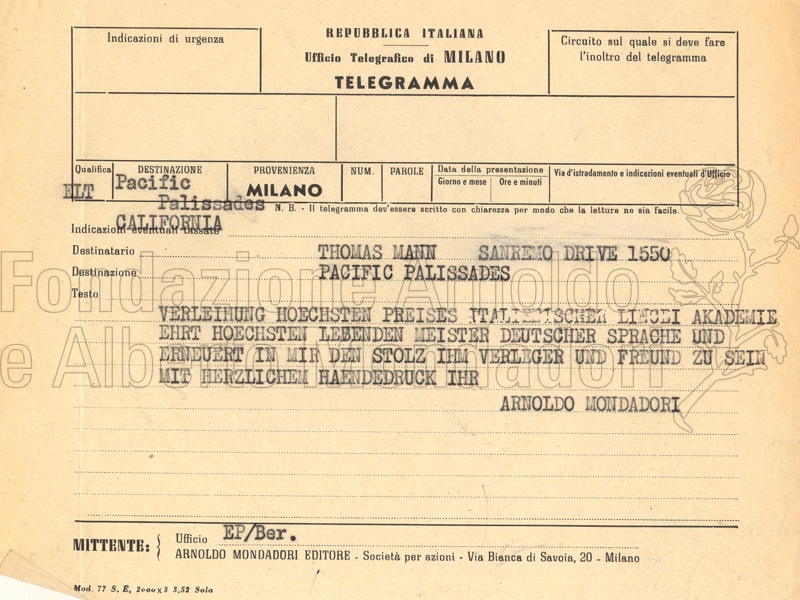 Indicazioni di urgenza
REPUBBLICA ITALIANA
Ufficio Telegrafico di MILANO
TELEGRAMMA
Circuito sul quale si deve fare
l'inoltro del telegramma
Qualifica
DESTINAZIONE
PROVENIENZA
NUM.
PAROLE
Data della presentazione
Giorno e mese
Ore e minuti
Via d'istradamento e indicazioni eventuali d'Ufficio
ELT
Pacific
Palissades
CALIFORNIA
MILANO
N. B. - Il telegramma dev'essere scritto con chiarezza per modo che la lettura ne sia facile.
Indicazioni eventuali tassate
Destinatario THOMAS MANN SANREMO DRIVE 1550
Destinazione PACIFIC PALISSADES
Testo
VERLEIHUNG HOECHSTEN PREISES ITALIENISCHER LINCEI AKADEMIE
EHRT HOECHSTEN LEBENDEN MEISTER DEUTSCHER SPRACHE UND
ERNEUERT IN MIR DEN STOLZ IHM VERLEGER UND FREUND ZU SEIN
MIT HERZLICHEM HAENDEDRUCK IHR
ARNOLDO MONDADORI
Fondazione Arnoldo
e Alberto Mondadori
MITTENTE:
Ufficio EP/Ber.
ARNOLDO MONDADORI EDITORE - Società per azioni - Via Bianca di Savoia, 20 - Milano
Mod. 77 S. E. 2000x3 3,52 Sola